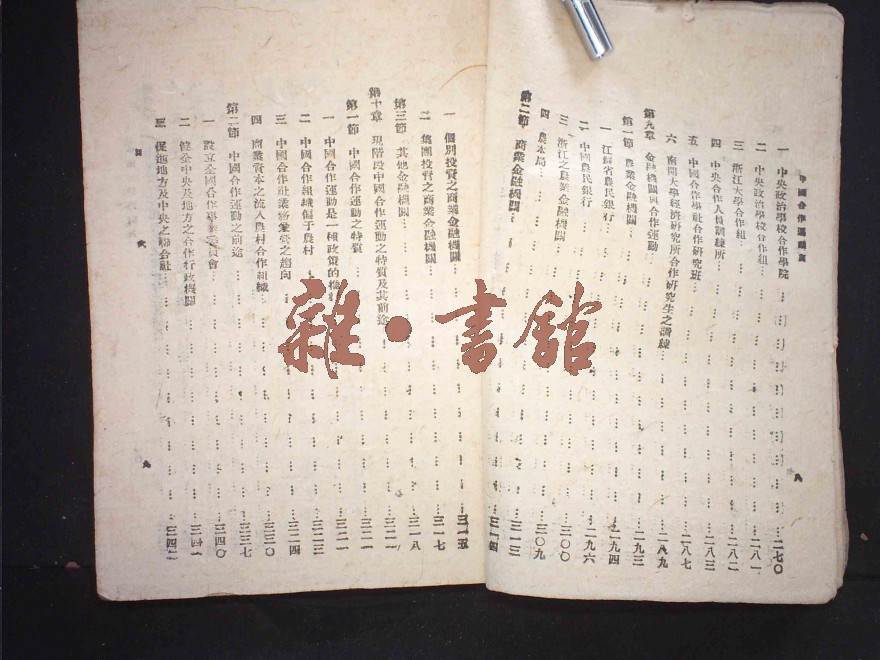 中國合作運動史
八
一 中央政治學校合作學院……二七〇
二 中央政治學校合作組……二八一
三 浙江大學合作組……二八二
四 中央合作人員訓練所……二八三
五 中國合作學社合作研究班……二八七
六 南開大學經濟研究所合作研究生之訓練……二八九
第九章 金融機關與合作運動……二九三
第一節 農業金融機關……二九四
一 江蘇省農民銀行……
二 中國農民銀行……二九六
三 浙江之農業金融機關……三〇〇
四 農本局……三〇九
第二節 商業金融機關……三一三
一 個別投資之商業金融機關……三一五
二 集團投資之商業金融機關……三一七
第三節 其他金融機關……三一八
第十章 現階段中國合作運動之特質及其前途……三二一
第一節 中國合作運動之特質……三二一
一 中國合作運動是一種政策的……
二 中國合作組織偏于農村……三二三
三 中國合作社業務兼營之趨向……三二四
四 商業資本之流入農村合作組織……三三〇
第二節 中國合作運動之前途……三三七
一 設立全國合作事業委員會……三四〇
二 健全中央及地方之合作行政機關……三四一
三 促進地方及中央之聯合社……三四二
目 次
九
雜·書館